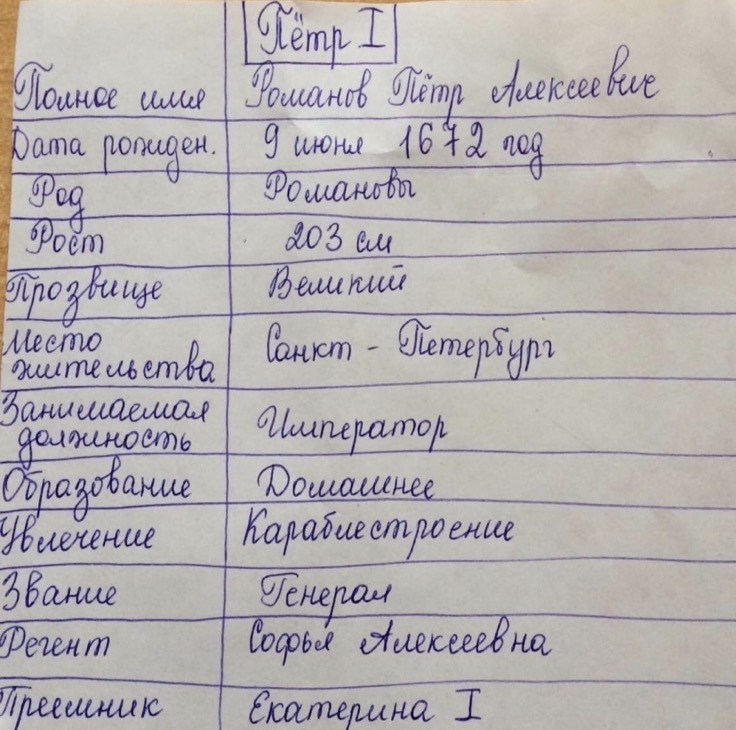 Пётр I
Полное имя Романов Пётр Алексеевич
Дата рожден. 9 июня 1672 год
Род Романовы
Рост 203 см
Прозвище Великий
Место
жительства Санкт - Петербург
Занимаемая
должность Император
Образование Домашнее
Увлечение Караблестроение
Звание Генерал
Регент Софья Алексеевна
Преемник Екатерина I